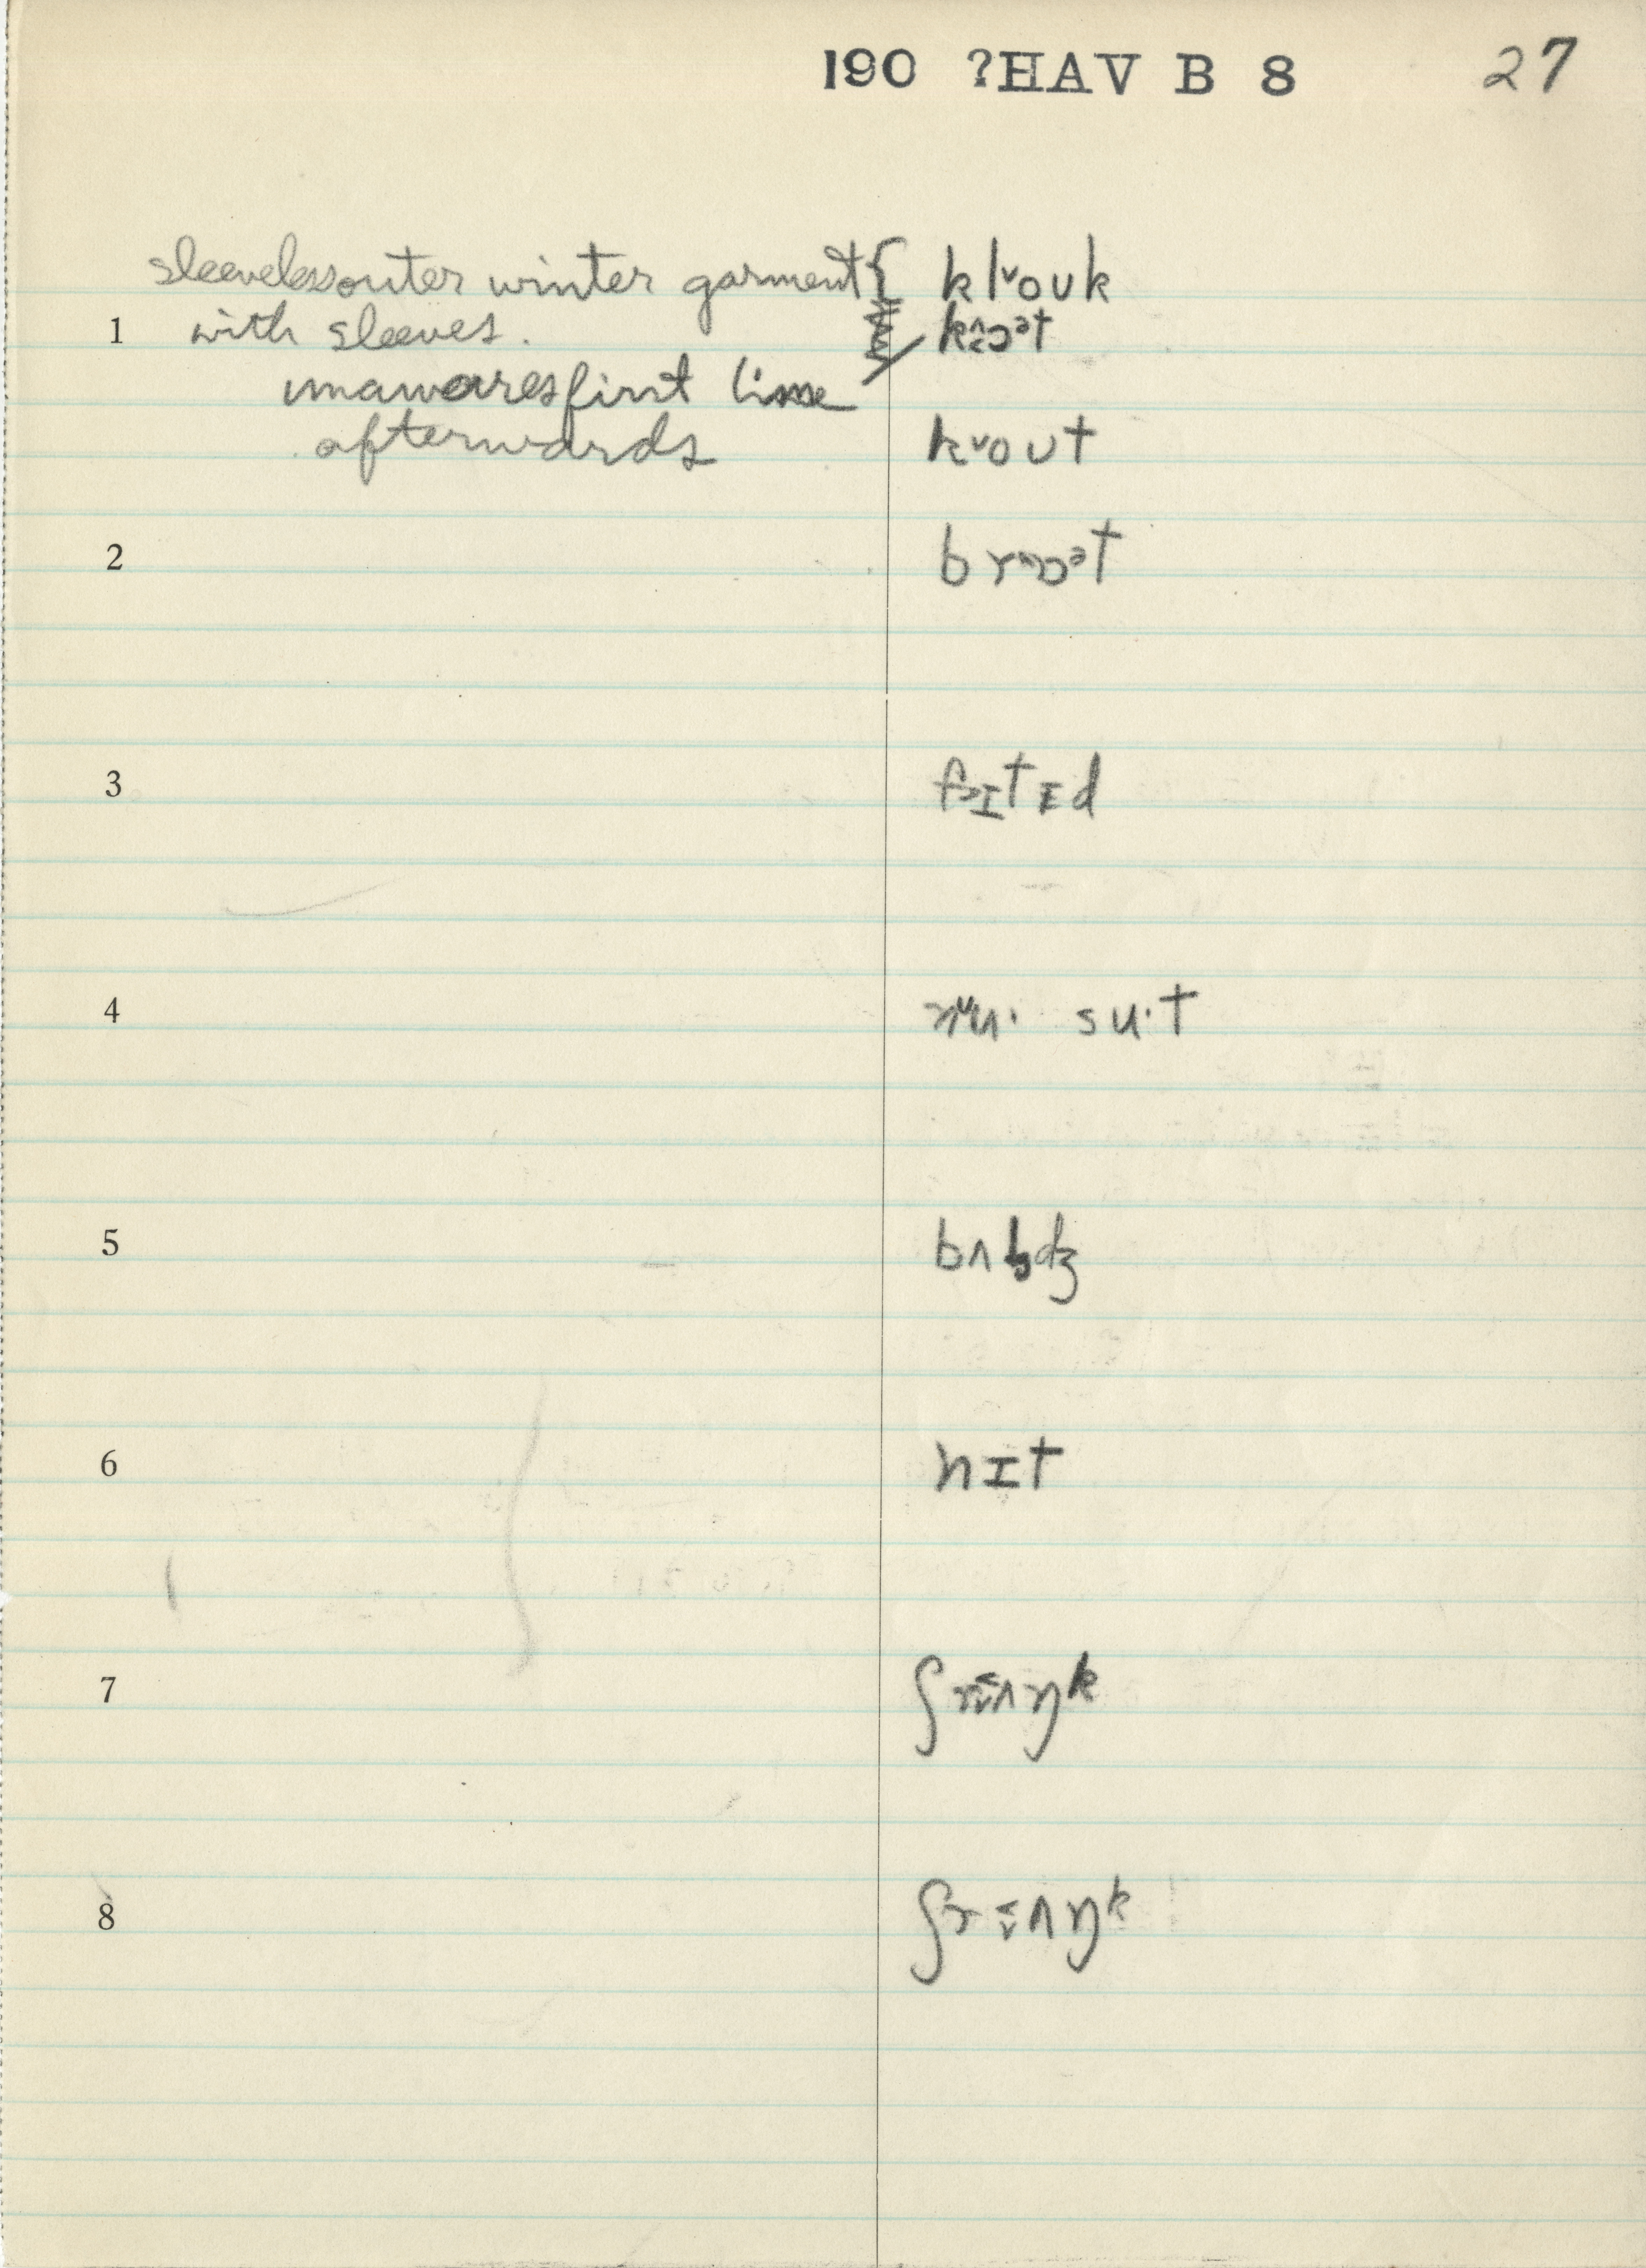 190 ?HAV B 8 27
sleeveless outer winter garment { klˇouk
1 with sleeves. kɔᵊt
unawares first time
afterwards kˇout
2 brɔᵊt
3 fɪtᵻd
4 nˇu· su·t
5 bʌldʒ
6 nɪt
7 ʃrɪʌŋᵏ
8 ʃrɪʌŋᵏ